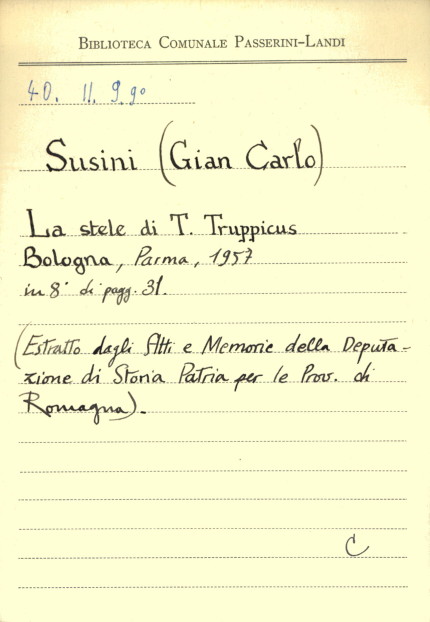 BIBLIOTECA COMUNALE PASSERINI-LANDI
40. II. 9.90
Susini (Gian Carlo)
La stele di T. Truppicus
Bologna, Parma, 1957
in 8° di pagg. 31.
(Estratto dagli Atti e Memorie della Deputa-
zione di Storia Patria per le Prov. di
Romagna).
C